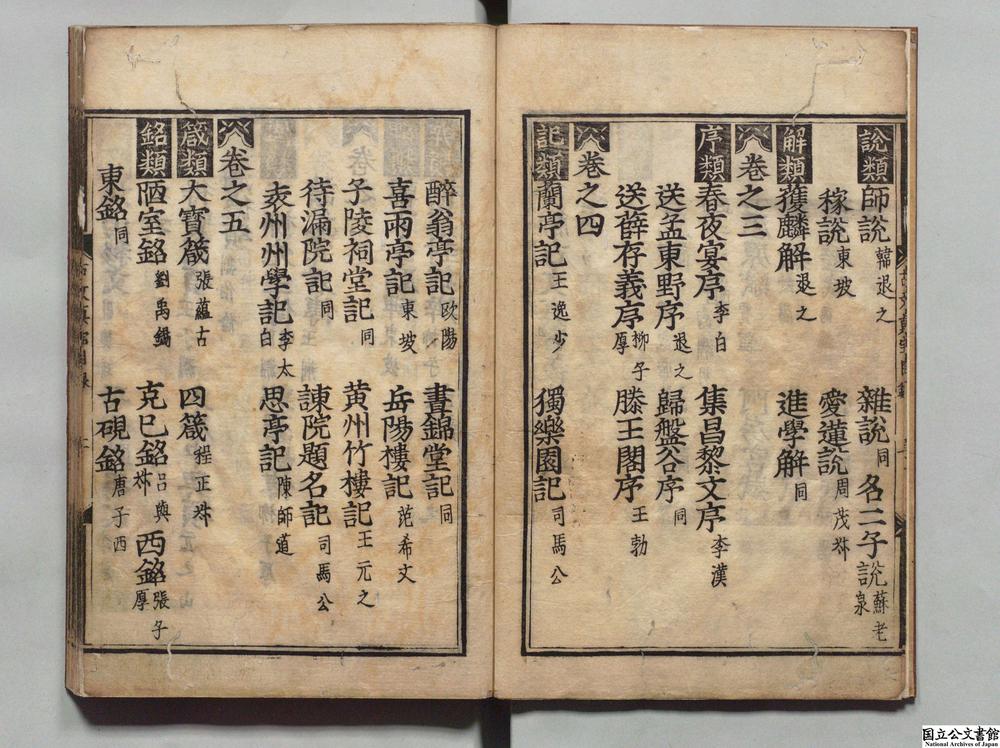 說類 師說 韓退之 雜說 同 名二子說 蘇老泉
稼說 東坡 愛蓮說 周茂叔
解類 獲麟解 退之 進學解 同
卷之三
序類 春夜宴序 李白 集昌黎文序 李漢
送孟東野序 退之 歸盤谷序 同
送薛存義序 柳子厚 滕王閣序 王勃
卷之四
記類 蘭亭記 王逸少 獨樂園記 司馬公
醉翁亭記 欧陽 晝錦堂記 同
喜雨亭記 東坡 岳陽樓記 范希文
子陵祠堂記 同 黃州竹樓記 王元之
待漏院記 同 諫院題名記 司馬公
袁州州學記 李太白 思亭記 陳師道
卷之五
箴類 大寶箴 張蘊古 四箴 程正叔
銘類 陋室銘 劉禹錫 克己銘 呂與叔 西銘 張子厚
東銘 同 古硯銘 唐子西
国立公文書館
National Archives of Japan